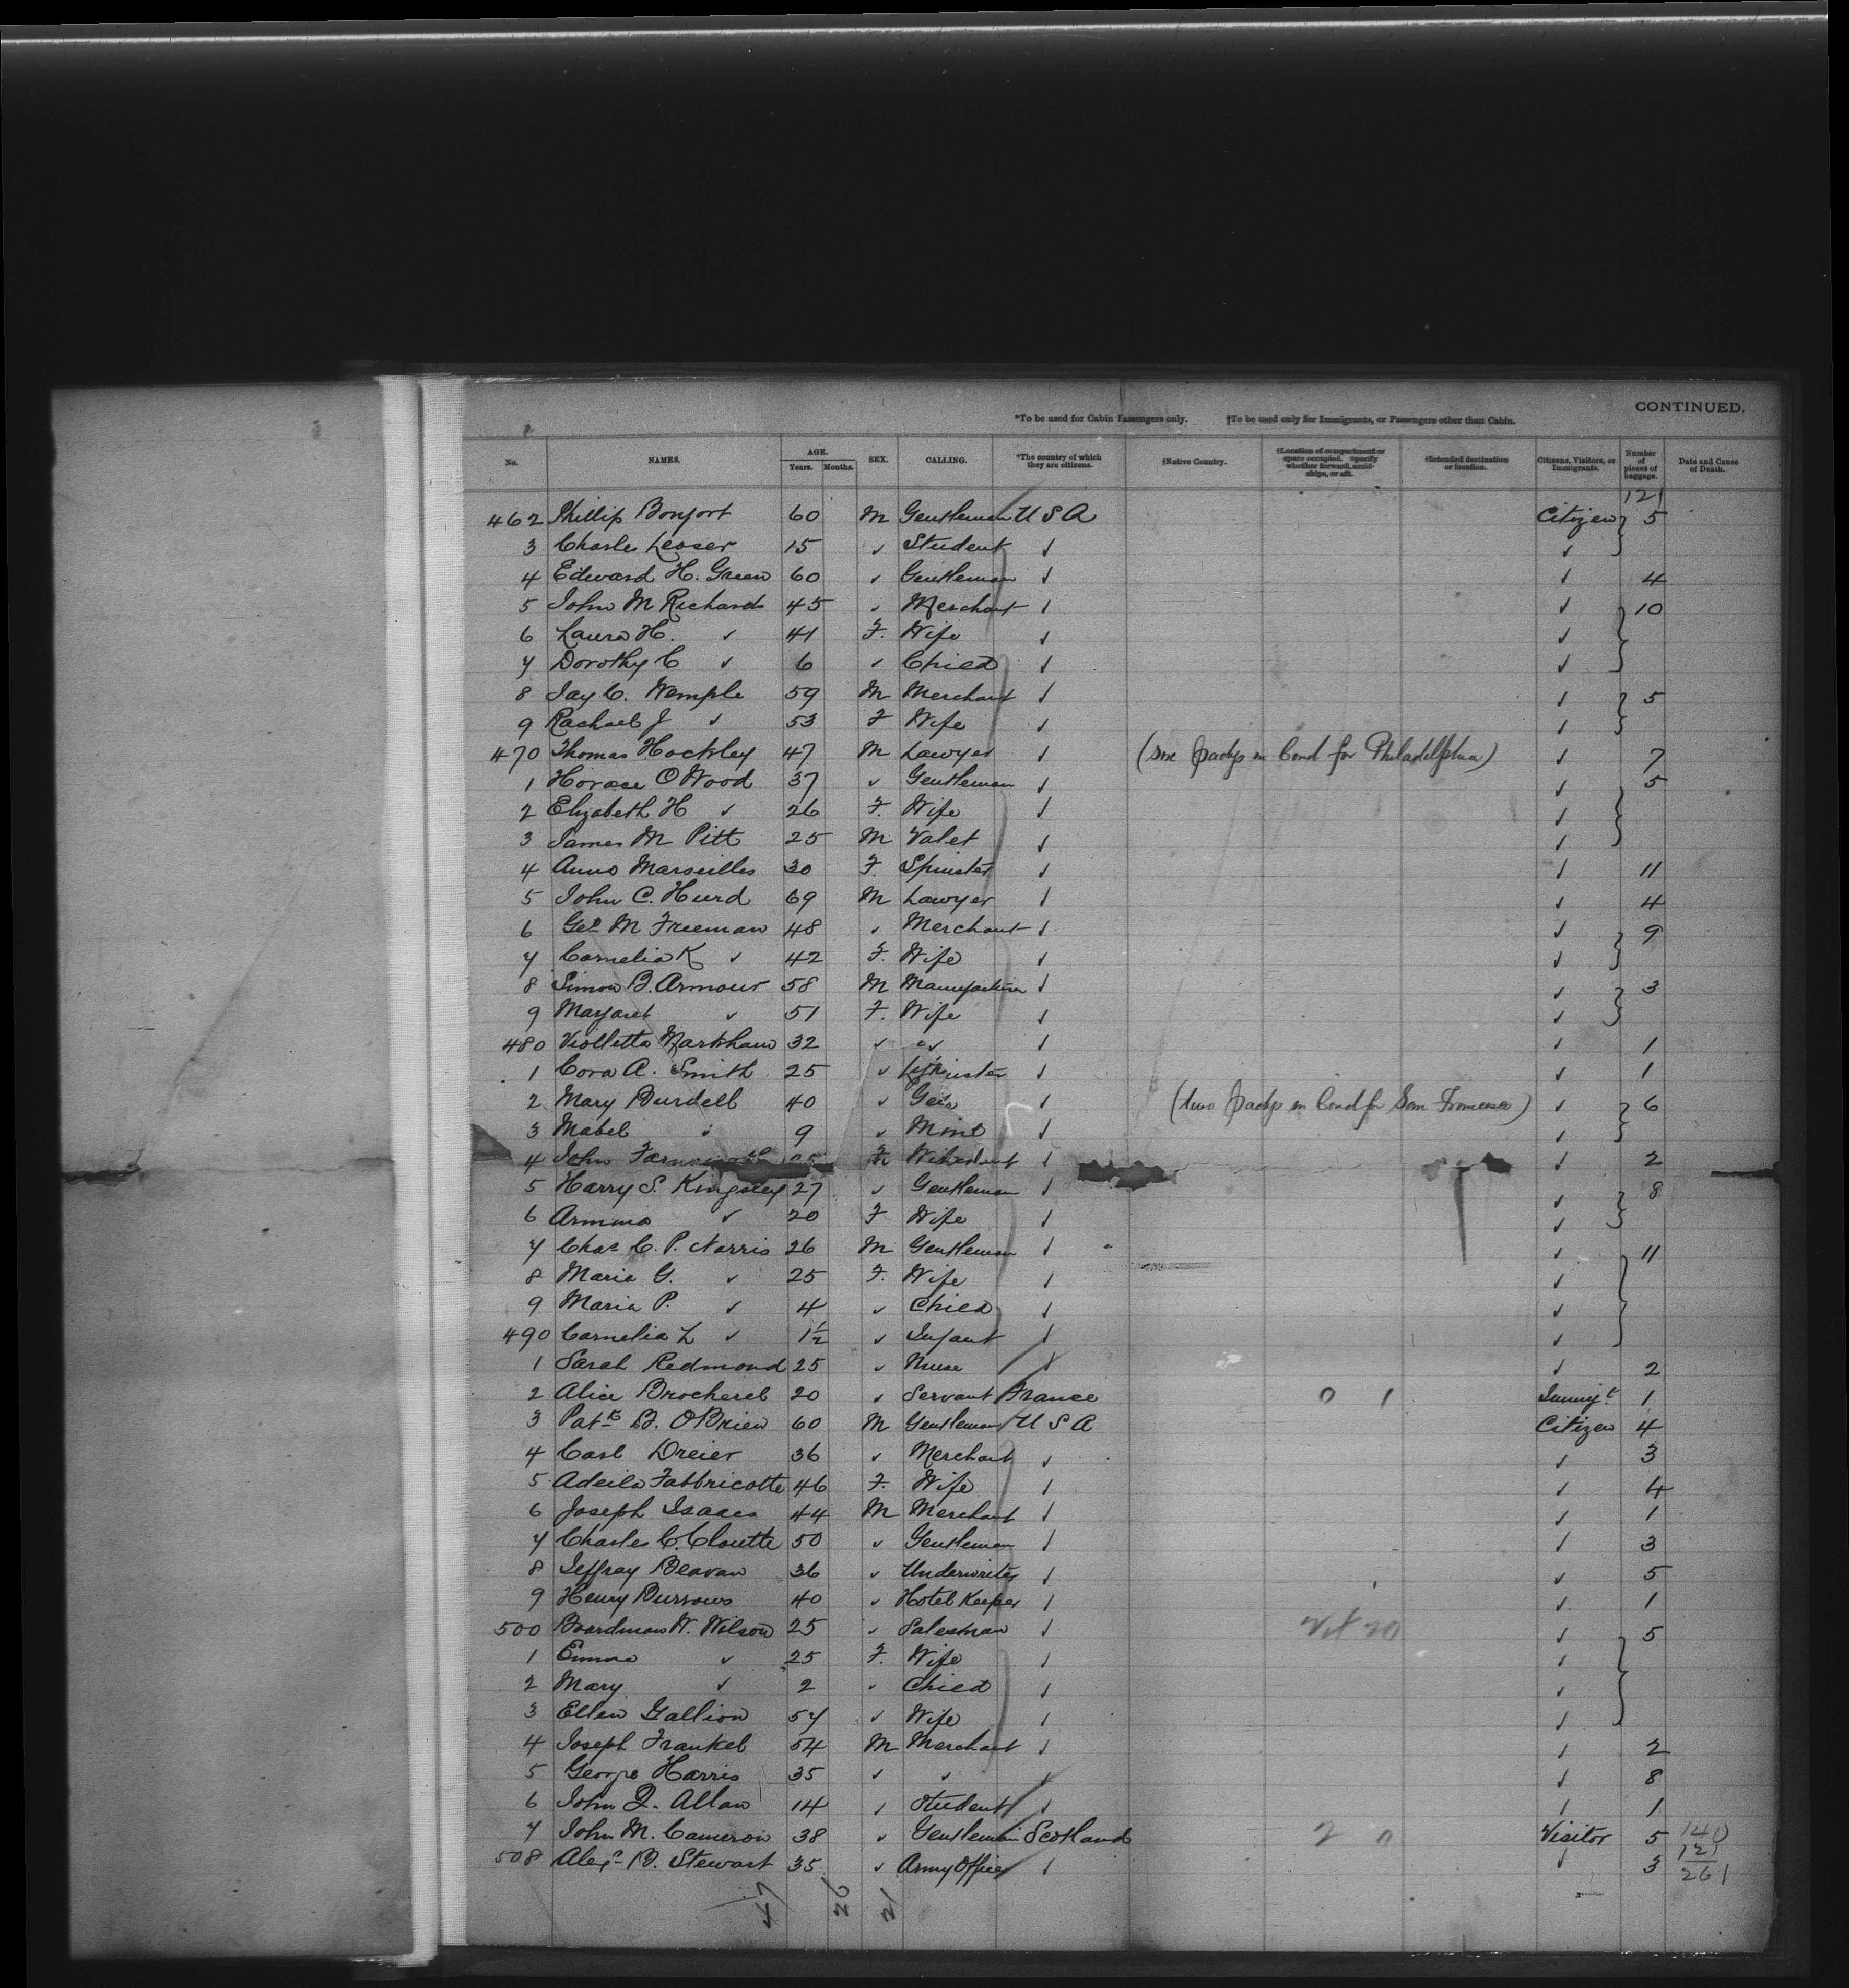 CONTINUED.
*To be used for Cabin Passengers only. †To be used only for Immigrants, or Passengers other than Cabin.
No. NAMES. AGE. Years. Months. SEX. CALLING. *The country of which they are citizens. †Native Country. †Location of compartment or space occupied. Specify whether forward, amidships, or aft. †Intended destination or location. Citizens, Visitors, or Immigrants. Number of pieces of baggage. Date and Cause of Death.
121
462 Phillip Bonfort 60 M Gentleman U S A Citizen 5
3 Charles Leoser 15 " Student " "
4 Edward H. Green 60 " Gentleman " " 4
5 John M Richards 45 " Merchant " " 10
6 Laura H. " 41 F. Wife " "
7 Dorothy C " 6 " Child " "
8 Jay C. Wemple 59 M Merchant " " 5
9 Rachael J " 53 F Wife " "
470 Thomas Hockley 47 M Lawyer " (one in bond for Philadelphia) " 7
1 Horace O Wood 37 " Gentleman " " 5
2 Elizabeth H " 26 F. Wife " "
3 James M Pitt 25 M Valet " "
4 Anna Marseilles 30 F. Spinster " " 11
5 John C. Hurd 69 M Lawyer " " 4
6 Geo M Freeman 48 " Merchant " " 9
7 Cornelia K " 42 F. Wife " "
8 Simon B. Armour 58 M Manufacturer " " 3
9 Margaret " 51 F. Wife " "
480 Violletta Markham 32 " " " " 1
1 Cora A. Smith 25 " Spinster " " 1
2 Mary Burdell 40 " " (two in bond for San Francisco) " 6
3 Mabel " 9 " " "
4 John M " " 2
5 Harry S. Kingsley 27 " Gentleman " " 8
6 " 20 F Wife " "
7 Chas C. P. Norris 26 M Gentleman " " 11
8 Marie G. " 25 F. Wife " "
9 Maria P. " 4 " Child " "
490 Cornelia L " 1½ " Infant " "
1 Sarah Redmond 25 " Nurse " " 2
2 Alice Brocherel 20 " Servant France 0 1 Immigt 1
3 Patk B. O'Brien 60 M Gentleman U S A Citizen 4
4 Carl Dreier 36 " Merchant " " 3
5 Adeila Fabbricotte 46 F. Wife " " 4
6 Joseph Isaacs 44 M Merchant " " 1
7 Charles C. Cloutte 50 " Gentleman " " 3
8 Jeffray Beavan 36 " Underwriter " " 5
9 Henry Burrows 40 " Hotel Keeper " " 1
500 Boardman W. Wilson 25 " Salesman " " 5
1 Emma " 25 F. Wife " "
2 Mary " 2 " Child " "
3 Ellen Gallion 57 " Wife " "
4 Joseph Frankel 54 M Merchant " " 2
5 George Harris 35 " " " " 8
6 John Q. Allan 14 " Student " " 1
7 John M. Cameron 38 " Gentleman Scotland 2 0 Visitor 5 140
508 Alexr B. Stewart 35 " Army Officer " " 3 121
261
47 26 21